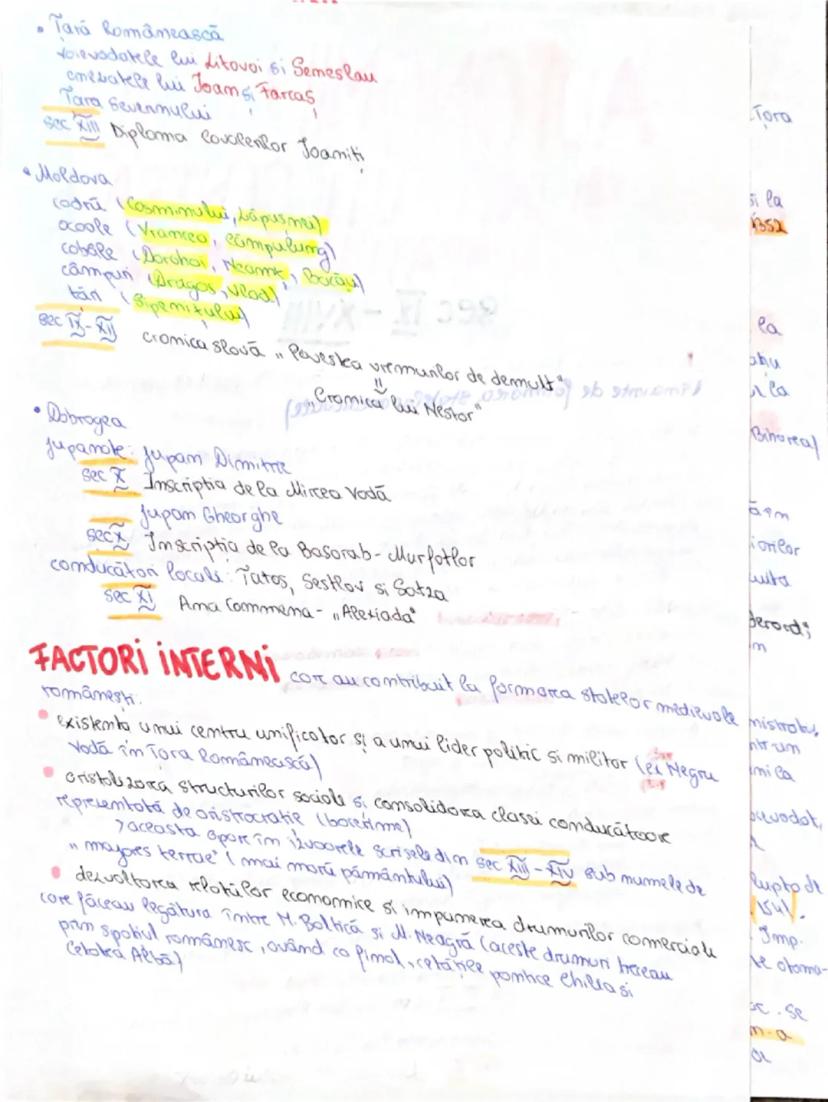 • Țară Românească
voievodatele lui Litovoi si Semeslau
cnezatele lui Ioan și Farcaș
Țara Severinului
sec XIII Diploma Cavalerilor Ioaniti
• Moldova
codrii (Cosminului, Lăpusnei)
ocoale (Vrancea, Câmpulung)
cobâle (Dorohoi, Neamt, Bacău)
câmpuri (Dragos, Vlad)
tări (Sipenitului)
sec IX-XII cronica slavă „Povestea vremurilor de demult"
=
Cronica lui Nestor"
• Dobrogea
jupanate: jupan Dimitrie
sec X Inscriptia de la Mircea Vodă
jupan Gheorghe
sec X Inscriptia de la Basarab-Murfatlar
conducători locali: Tatos, Sestlav si Satza
sec XI Ana Comnena - „Alexiada"
FACTORI INTERNI care au contribuit la formarea statelor medievale
românești.
• existenta unui centru unificator și a unui lider politic si militar (ex Negru
Vodă în Țara Românească)
• cristalizarea structurilor sociale si consolidarea clasei conducătoare
reprezentată de aristocratie (boierime)
→ aceasta apare în izvoarele scrise din sec XIII - XIV sub numele de
„majores terrae" (mai marii pământului)
• dezvoltarea relatiilor economice si impunerea drumurilor comerciale
care făceau legătura între M. Baltică si M. Neagră (aceste drumuri treceau
prin spatiul românesc, având ca final, cetătile pontice Chilia si
Cetatea Albă)
Țara
si la
1352
la
la
Bihorea)
uita
m
ntr un
lupta de
Imp.
le otoma-
se